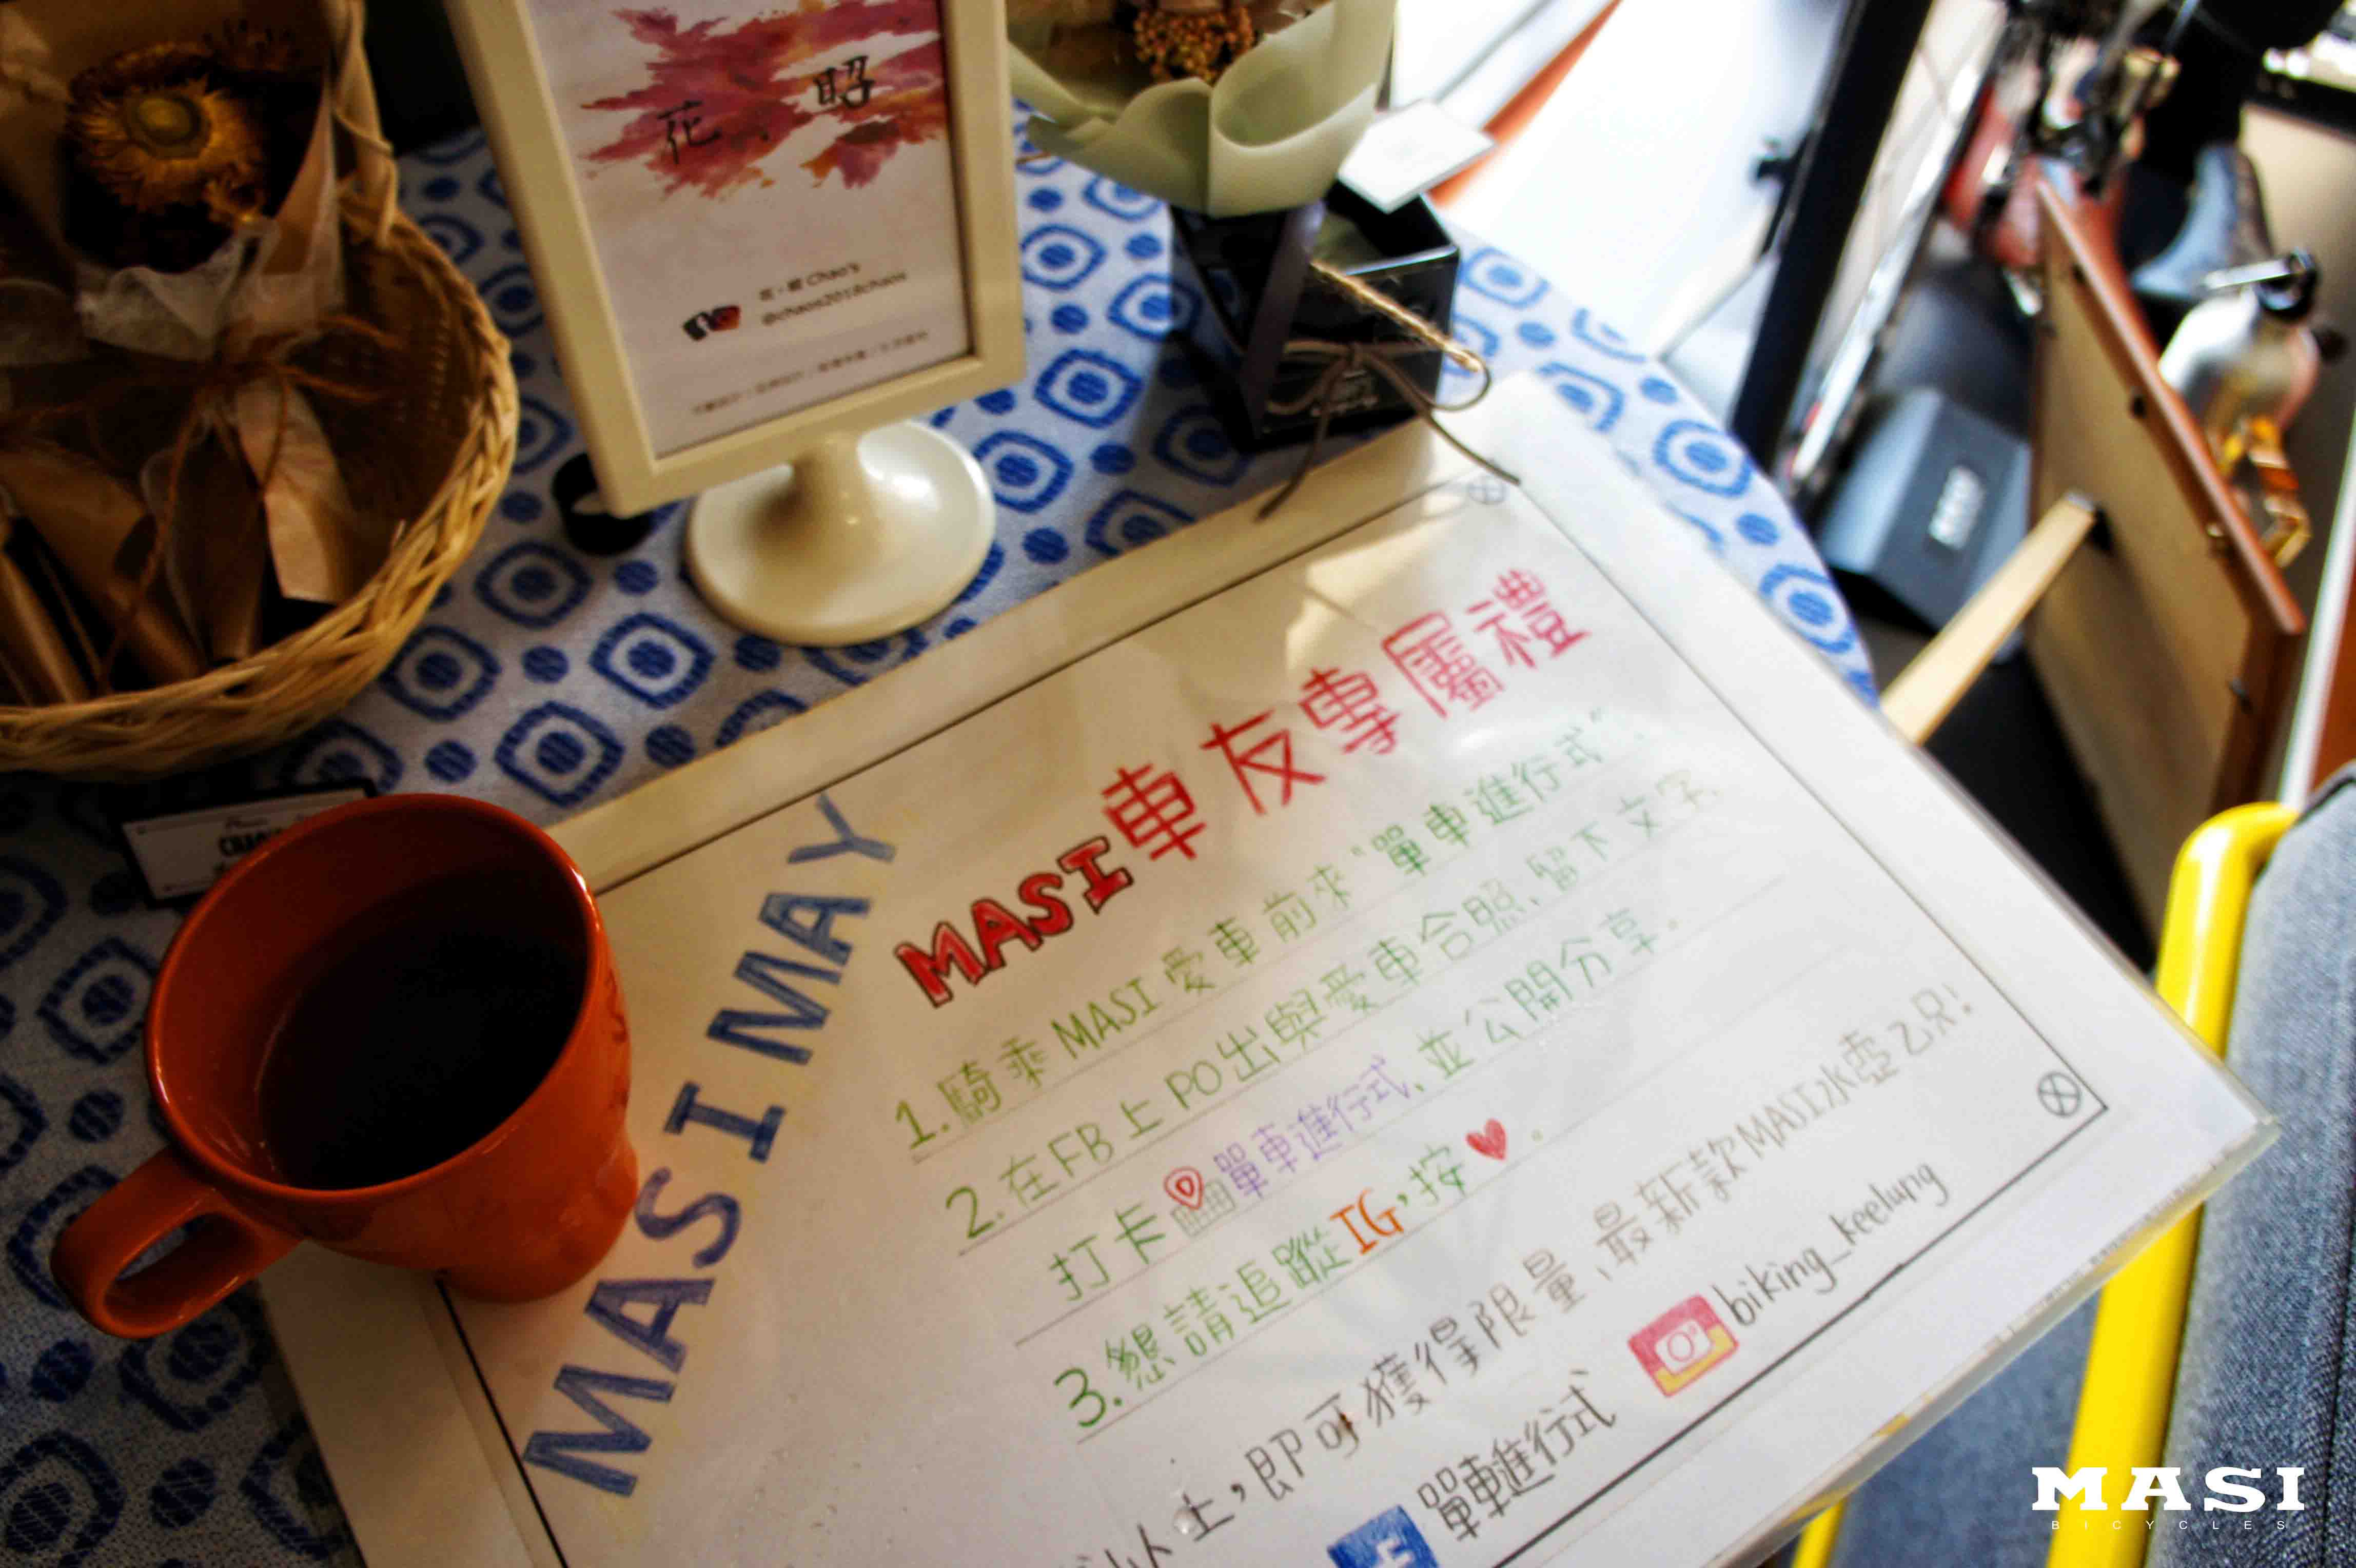 花 . 昭
花．昭 Chao's
@chaos2018chaos
MASI MAY
MASI車友專屬禮
1. 騎乘 MASI 愛車前來"單車進行式"、
2. 在FB上PO出與愛車合照、留下文字、
打卡 單車進行式、並公開分享。
3. 懇請追蹤IG，按♥。
以上，即可獲得限量、最新款MASI水壺乙只！
單車進行式
biking_keelung
MASI
BICYCLES